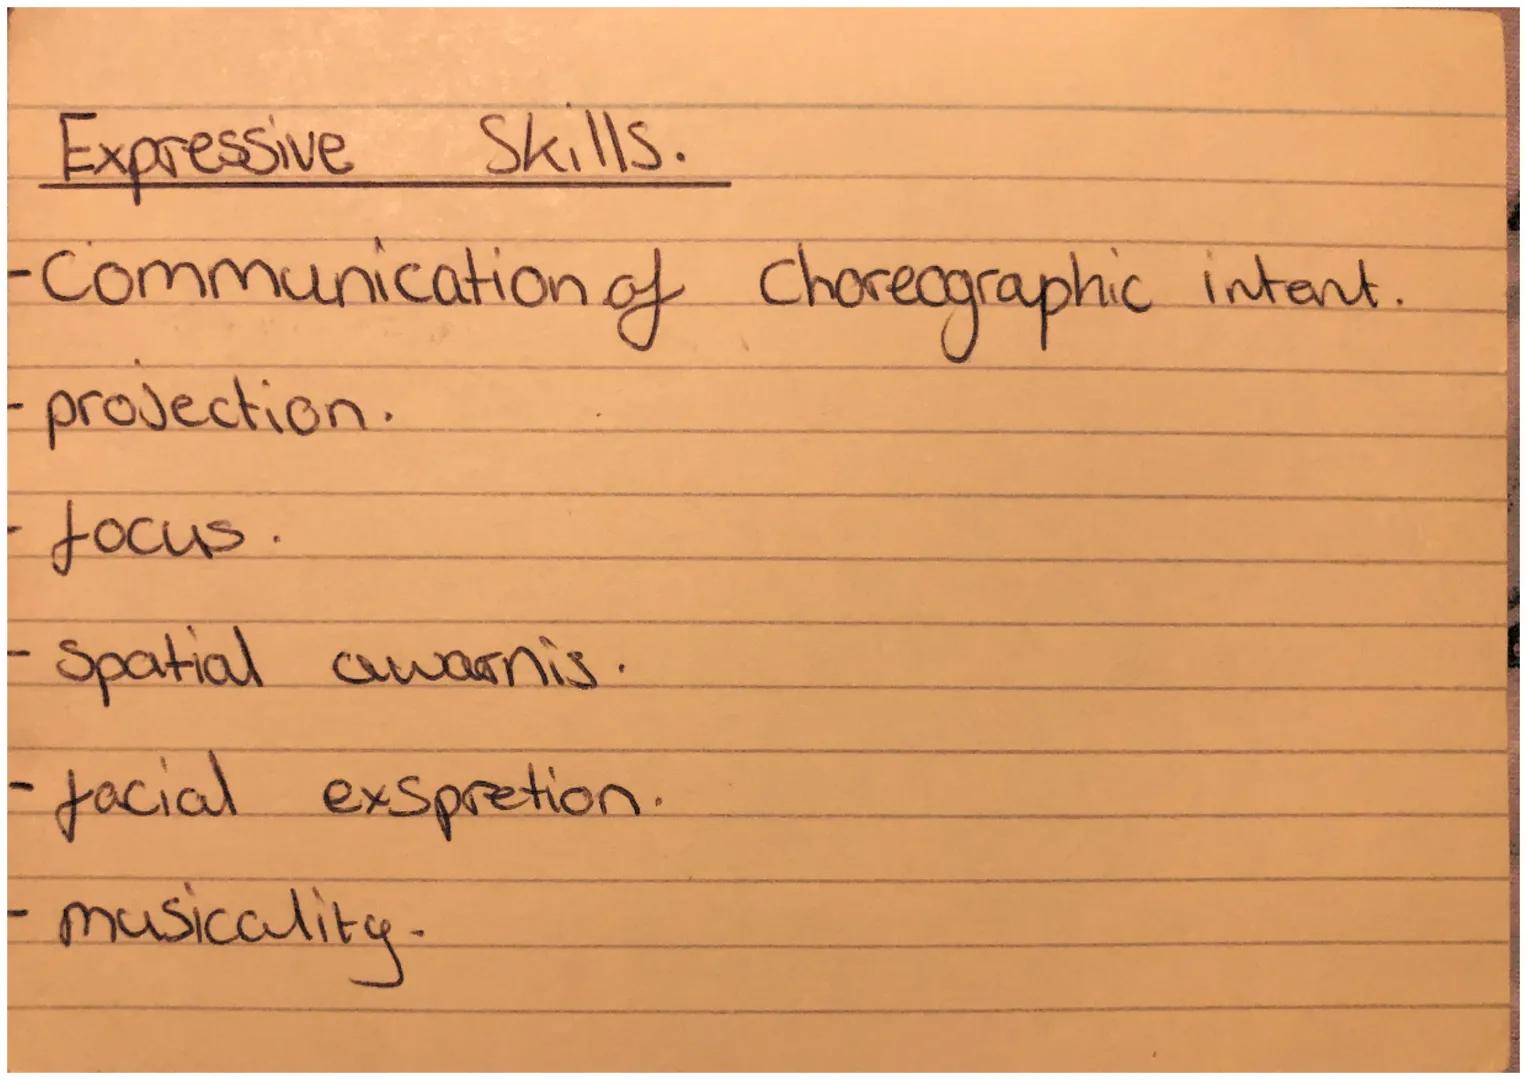 Expressive Skills.
-Communication of Choreographic intent.
- projection.
- focus.
- Spatial awarnis.
- facial exspretion.
- musicality.